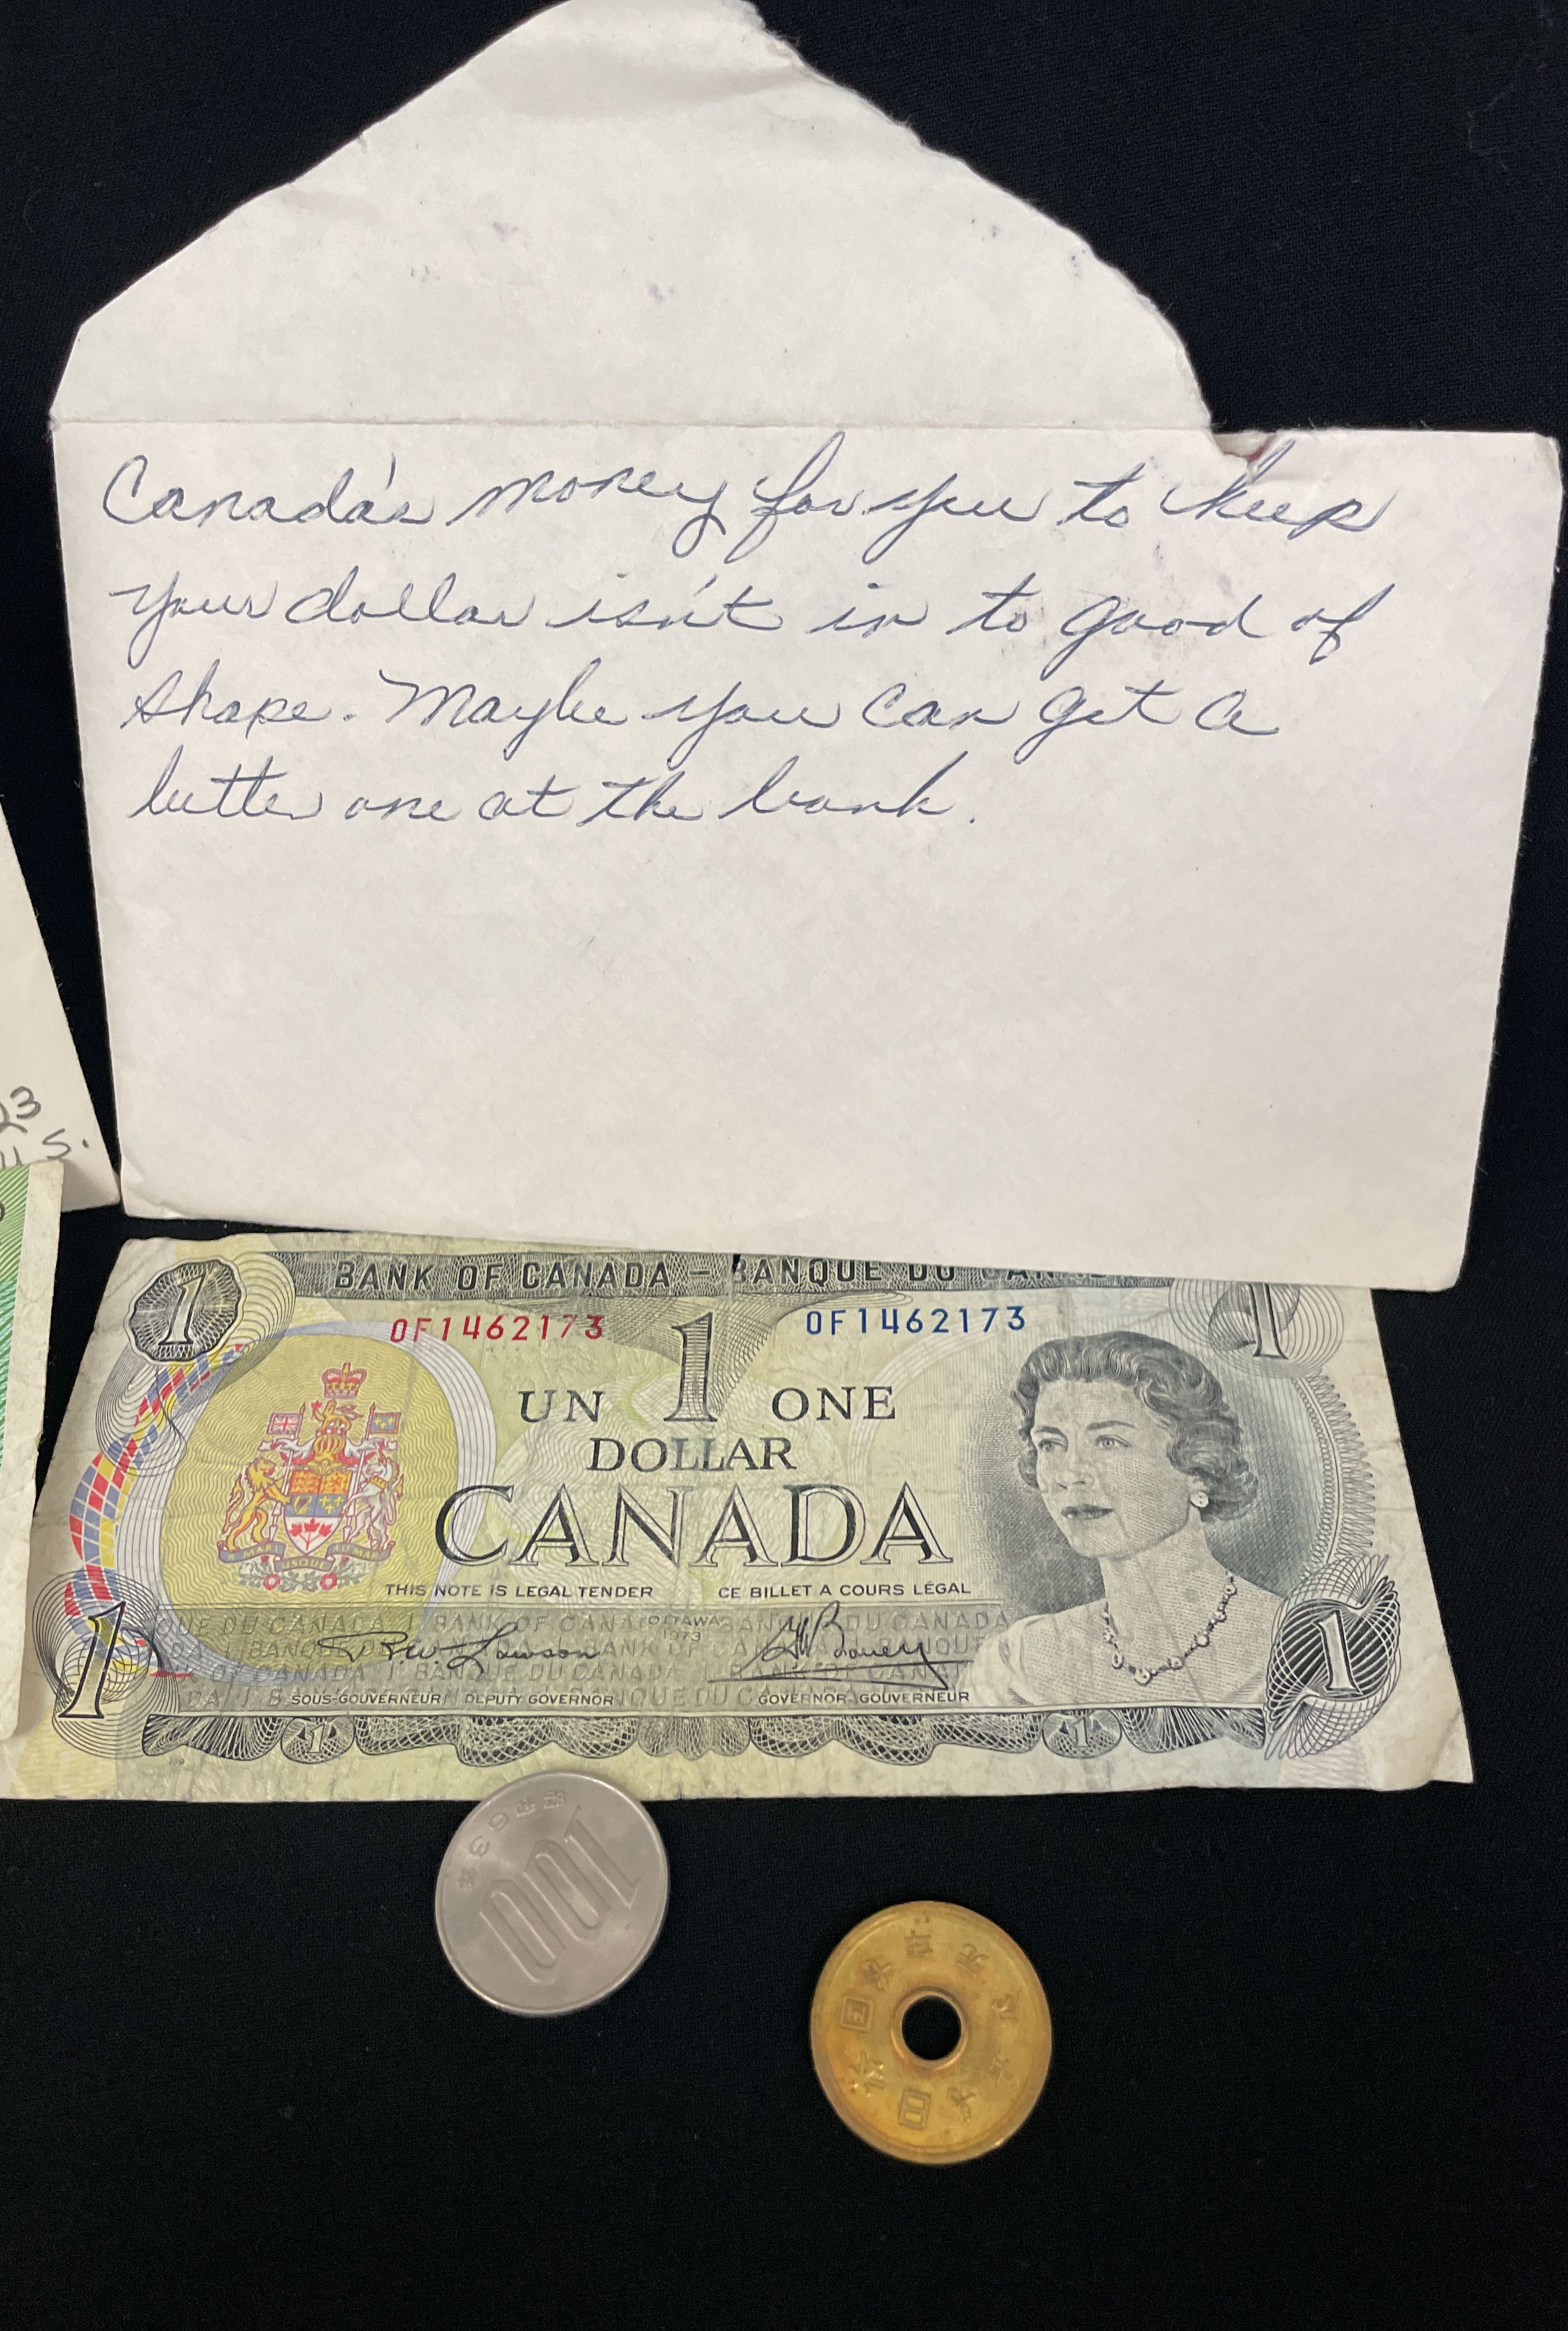 Canada's money for you to keep
your dollar isn't in to good of
shape. Maybe you can get a
better one at the bank.
23
U S.
BANK OF CANADA – BANQUE DU CANADA
1 1
OF1462173 OF1462173
UN 1 ONE
DOLLAR
CANADA
A MARI USQUE AD MARE
THIS NOTE IS LEGAL TENDER CE BILLET A COURS LÉGAL
OTTAWA
1973
R W. Lawson GK Bouey
SOUS-GOUVERNEUR DEPUTY GOVERNOR GOVERNOR-GOUVERNEUR
1 1 1 1
100